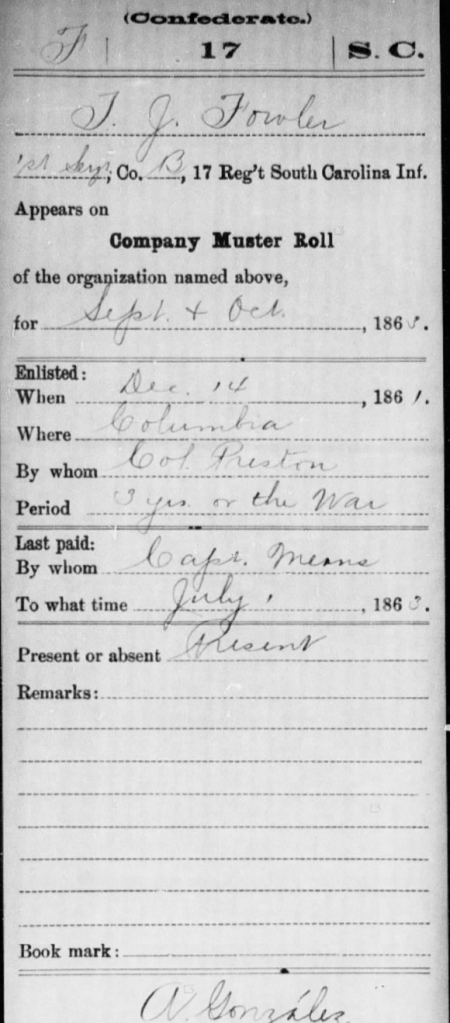 (Confederate.)
F | 17 | S. C.
T. J. Fowler
1st Sergt, Co. B, 17 Reg't South Carolina Inf.
Appears on
Company Muster Roll
of the organization named above,
for Sept. & Oct. , 1863.
Enlisted:
When Dec. 14 , 1861.
Where Columbia
By whom Col. Preston
Period 3 yrs. or the War
Last paid:
By whom Capt. Means
To what time July 1 , 1863.
Present or absent Present
Remarks:
Book mark:
A. González